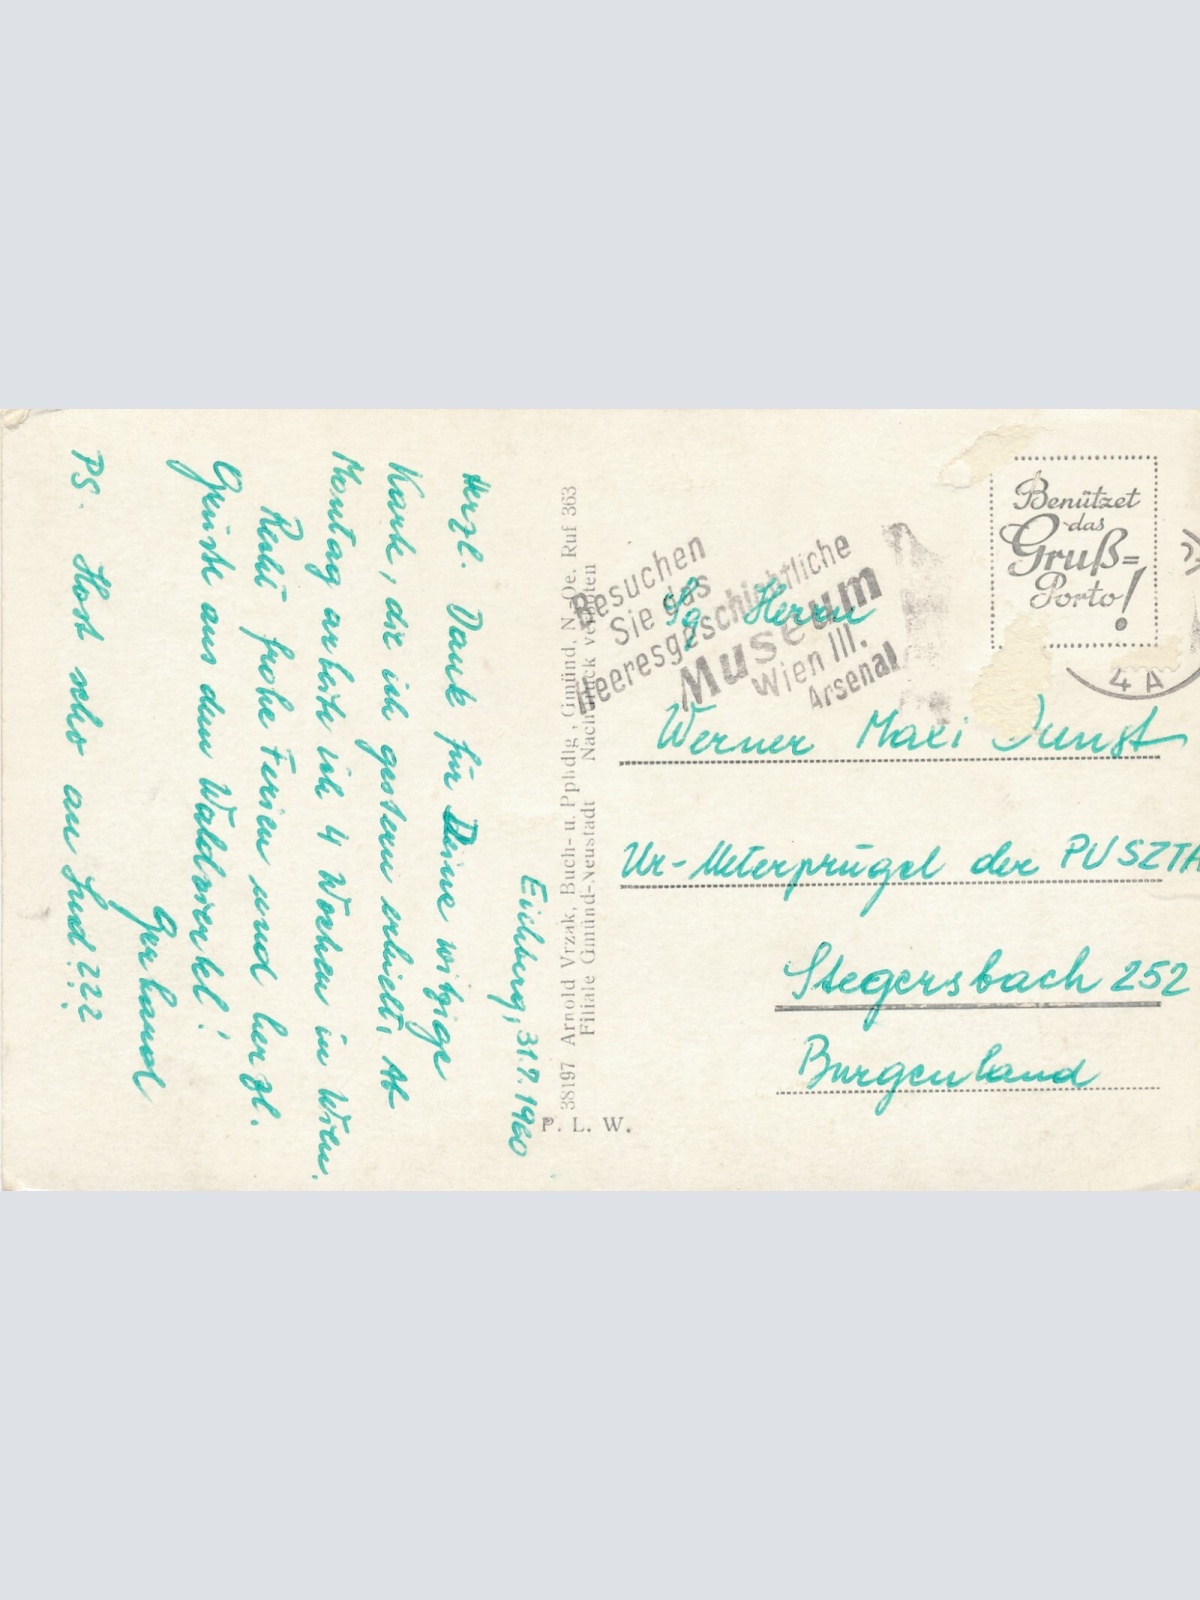 Eichberg, 31.7.1960
Herzl. Dank für Deine witzige
Karte, die ich gestern erhielt. Ab
Montag arbeite ich 4 Wochen in Wien.
Recht frohe Ferien und herzl.
Grüße aus dem Waldviertel!
Gerhand
PS. Host scho an
38197 Arnold Vrzak, Buch- u. Pphdlg., Gmünd, N.-Oe. Ruf 363
Filiale Gmünd-Neustadt Nachdruck verboten
P. L. W.
Besuchen
Sie das
Heeresgeschichtliche
Museum
Wien III.
Arsenal
Benützet
das
Gruß=
Porto!
4 A
Sg. Herrn
Werner Maxi
Ur-Meterprügel der PUSZTA
Stegersbach 252
Burgenland